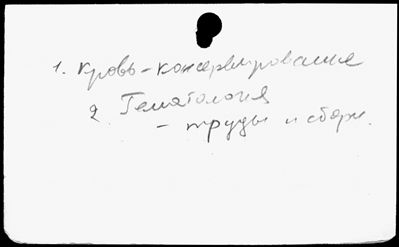 1. Кровь - консервирование
2. Гематология
- труды и сборн.